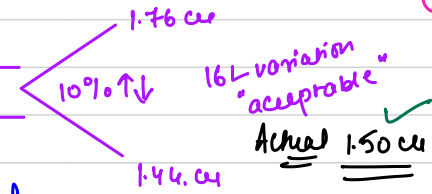 1.76 cu
10% ↑↓
16 ← variation
"aceeptable"
Actual 1.50 cu
1.44. cu